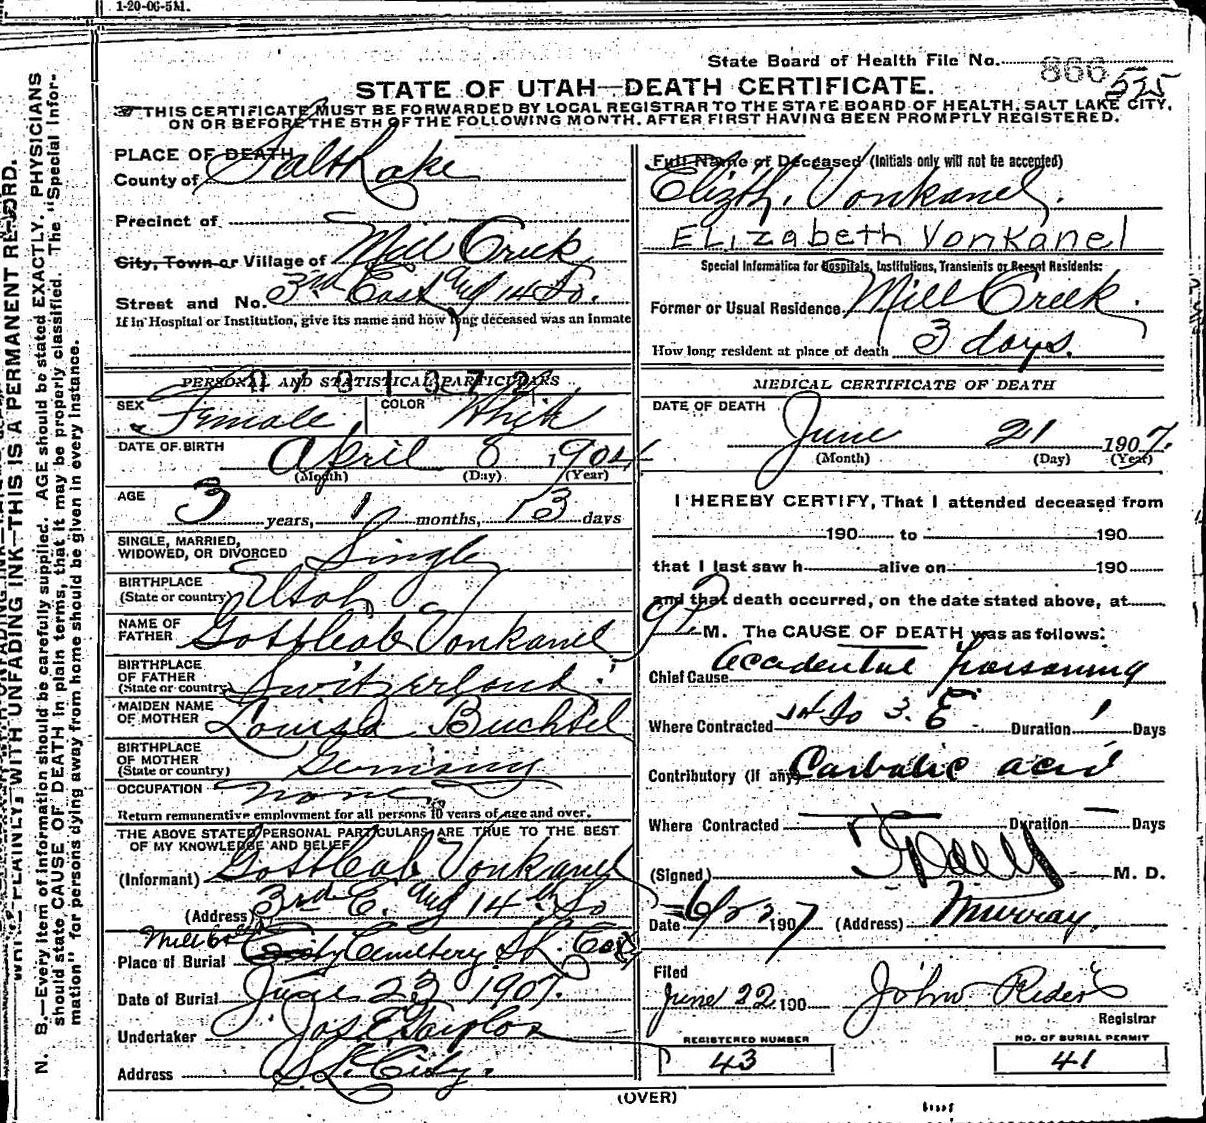 1-20-06-5M.
State Board of Health File No. 866 525
STATE OF UTAH—DEATH CERTIFICATE.
THIS CERTIFICATE MUST BE FORWARDED BY LOCAL REGISTRAR TO THE STATE BOARD OF HEALTH, SALT LAKE CITY,
ON OR BEFORE THE 5TH OF THE FOLLOWING MONTH, AFTER FIRST HAVING BEEN PROMPTLY REGISTERED.
PLACE OF DEATH
County of Salt Lake
Precinct of
City, Town or Village of Mill Creek
Street and No. 3rd East and 14 So.
If in Hospital or Institution, give its name and how long deceased was an inmate
PERSONAL AND STATISTICAL PARTICULARS
SEX Female COLOR White
DATE OF BIRTH April 8 1904
(Month) (Day) (Year)
AGE 3 years, 1 months, 13 days
SINGLE, MARRIED,
WIDOWED, OR DIVORCED Single
BIRTHPLACE
(State or country) Utah
NAME OF
FATHER Gottleab Vonkanel
BIRTHPLACE
OF FATHER
(State or country) Switzerland
MAIDEN NAME
OF MOTHER Louisa Buchtel
BIRTHPLACE
OF MOTHER
(State or country) Germany
OCCUPATION none
Return remunerative employment for all persons 10 years of age and over.
THE ABOVE STATED PERSONAL PARTICULARS ARE TRUE TO THE BEST
OF MY KNOWLEDGE AND BELIEF
(Informant) Gottleab Vonkanel
(Address) 3rd E. and 14th So
Place of Burial City Cemetery S.L.
Date of Burial June 23 1907.
Undertaker Jos E Taylor
Address S.L. City.
Full Name of Deceased (Initials only will not be accepted)
Elizth. Vonkanel.
ELizabeth Vonkanel
Special Information for Hospitals, Institutions, Transients or Recent Residents:
Former or Usual Residence Mill Creek.
How long resident at place of death 3 days.
MEDICAL CERTIFICATE OF DEATH
DATE OF DEATH
June 21 1907.
(Month) (Day) (Year)
I HEREBY CERTIFY, That I attended deceased from
190 to 190
that I last saw h alive on 190
and that death occurred, on the date stated above, at
M. The CAUSE OF DEATH was as follows:
Chief Cause Accidental poisoning
Where Contracted 14 So 3. E Duration 1 Days
Contributory (if any) Carbolic acid
Where Contracted Duration Days
(Signed) M. D.
Date 6/22 1907 (Address) Murray.
Filed
June 22 190 John Rider
Registrar
REGISTERED NUMBER
43
NO. OF BURIAL PERMIT
41
(OVER)
N. B.—Every item of information should be carefully supplied. AGE should be stated EXACTLY. PHYSICIANS
should state CAUSE OF DEATH in plain terms, that it may be properly classified. The "Special Infor-
mation" for persons dying away from home should be given in every instance.
WRITE PLAINLY, WITH UNFADING INK—THIS IS A PERMANENT RECORD.